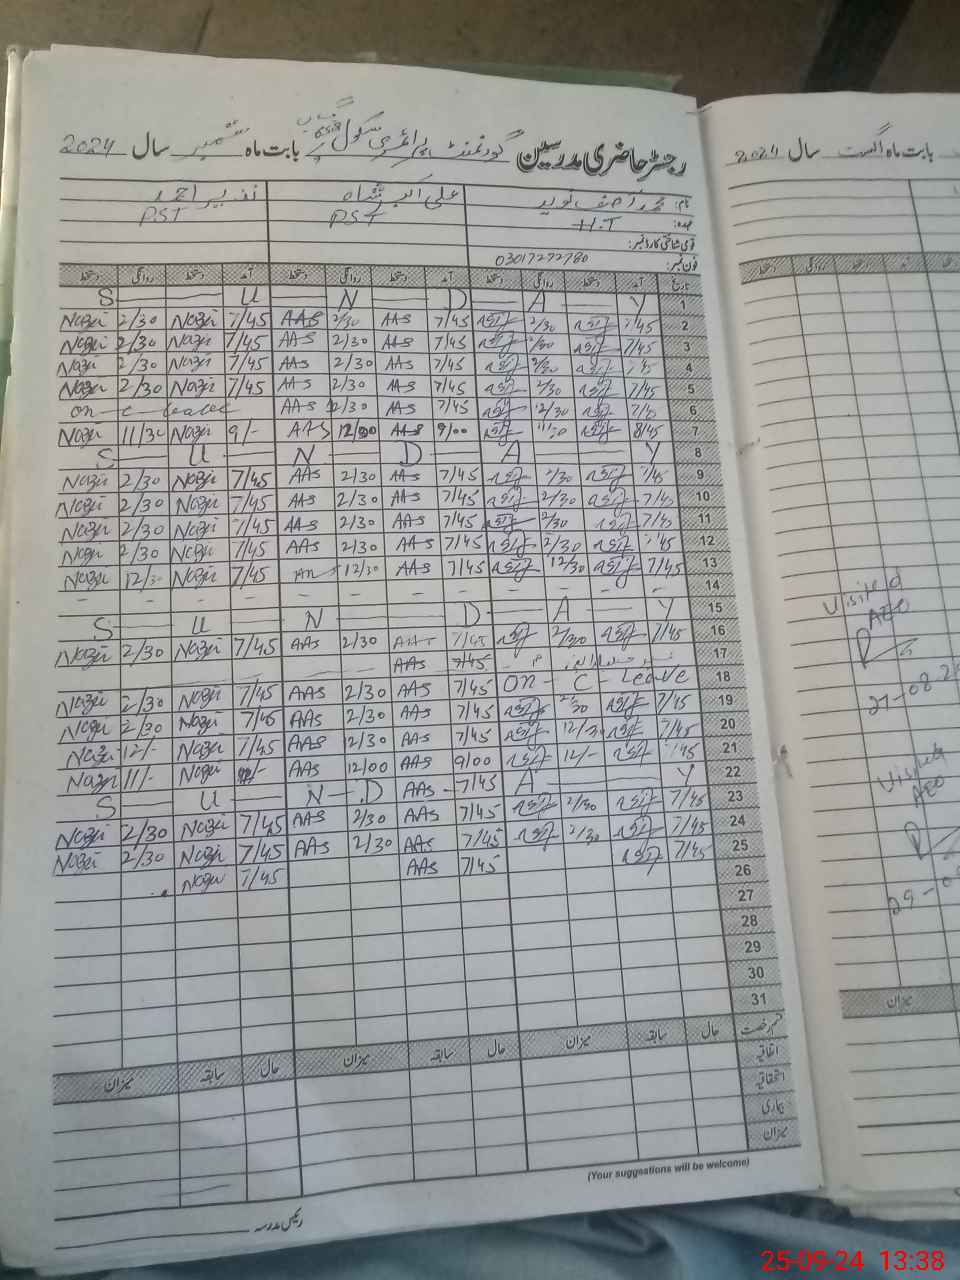 رجسٹر حاضری مدرسین گورنمنٹ پرائمری سکول بابت ماہ ستمبر سال 2024
نام: محمد آصف نوید علی اکبر شاہ نذیر احمد
عہدہ: H.T PST PST
قومی شناختی کارڈ نمبر:
فون نمبر: 03017272780
تاریخ آمد دستخط روانگی دستخط آمد دستخط روانگی دستخط آمد دستخط روانگی دستخط
1 S U N D A Y
2 Nazir 2/30 Nazir 7/45 AAS 2/30 AAS 7/45 2/30 7/45
3 Nazir 2/30 Nazir 7/45 AAS 2/30 AAS 7/45 2/30 7/45
4 Nazir 2/30 Nazir 7/45 AAS 2/30 AAS 7/45 2/30
5 Nazir 2/30 Nazir 7/45 AAS 2/30 AAS 7/45 2/30 7/45
6 on c leave AAS 2/30 AAS 7/45 2/30 7/45
7 Nazir 11/30 Nazir 9/- AAS 12/00 AAS 9/00 8/45
8 S U N D A Y
9 Nazir 2/30 Nazir 7/45 AAS 2/30 AAS 7/45 2/30 7/45
10 Nazir 2/30 Nazir 7/45 AAS 2/30 AAS 7/45 2/30 7/45
11 Nazir 2/30 Nazir 7/45 AAS 2/30 AAS 7/45 2/30 7/45
12 Nazir 2/30 Nazir 7/45 AAS 2/30 AAS 7/45 2/30 7/45
13 Nazir 12/30 Nazir 7/45 12/30 AAS 7/45 12/30 7/45
14 - - - - - - - - - -
15 S U N D A Y
16 Nazir 2/30 Nazir 7/45 AAS 2/30 AAS 7/45 2/30 7/45
17 AAS 7/45
18 Nazir 2/30 Nazir 7/45 AAS 2/30 AAS 7/45 On - C - Leave
19 Nazir 2/30 Nazir 7/45 AAS 2/30 AAS 7/45 2/30 7/45
20 Nazir 12/- Nazir 7/45 AAS 12/30 AAS 7/45 12/30 7/45
21 Nazir 11/- Nazir AAS 12/00 AAS 9/00 12/- 7/45
22 S U N D AAS 7/45 A Y
23 Nazir 2/30 Nazir 7/45 AAS 2/30 AAS 7/45 2/30 7/45
24 Nazir 2/30 Nazir 7/45 AAS 2/30 AAS 7/45 2/30 7/45
25 Nazir 7/45 AAS 7/45 7/45
26
27
28
29
30
31
قسم رخصت حال سابقہ میزان حال سابقہ میزان حال سابقہ میزان
اتفاقیہ
استحقاقیہ
بیماری
میزان
(Your suggestions will be welcome)
رئیس مدرسہ
بابت ماہ اگست سال 2024
Visited
AEO
27-08-2
Visited
AEO
29-0
میزان
25-09-24 13:38